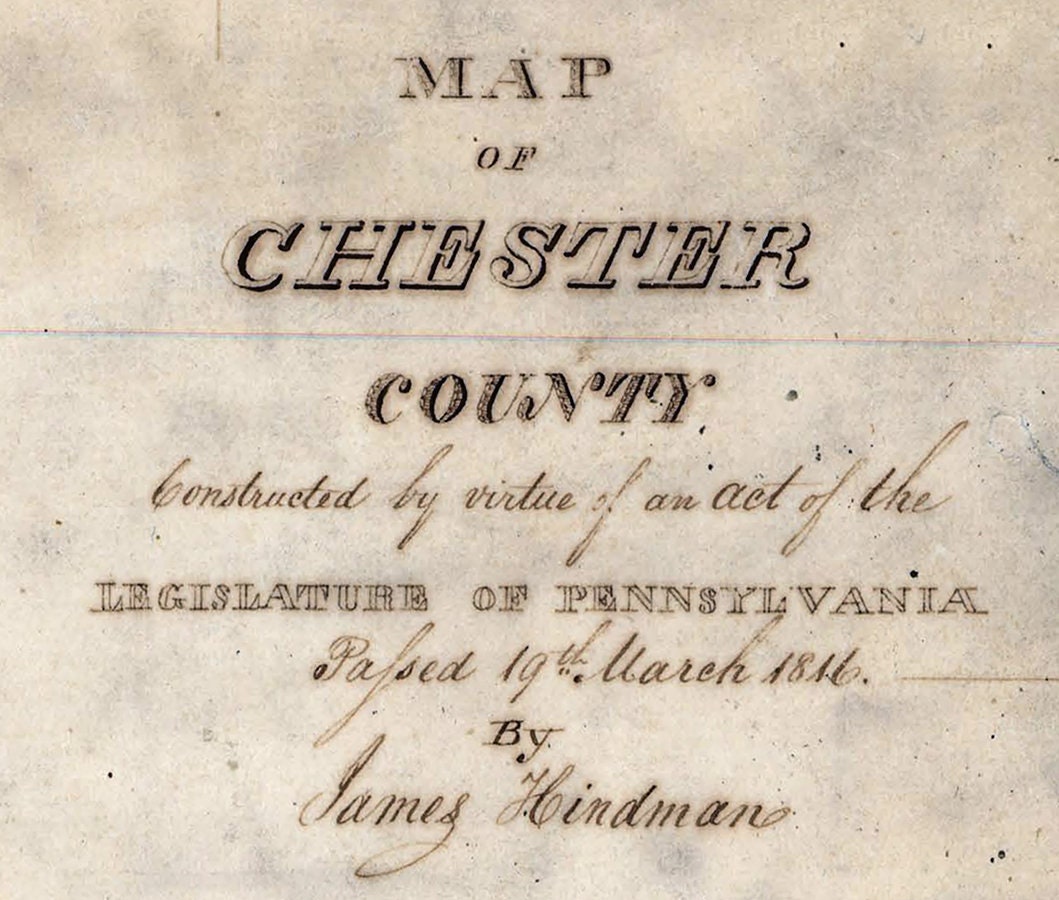 MAP
OF
CHESTER
COUNTY
Constructed by virtue of an act of the
LEGISLATURE OF PENNSYLVANIA
Paſsed 19th. March 1816.
By
James Hindman